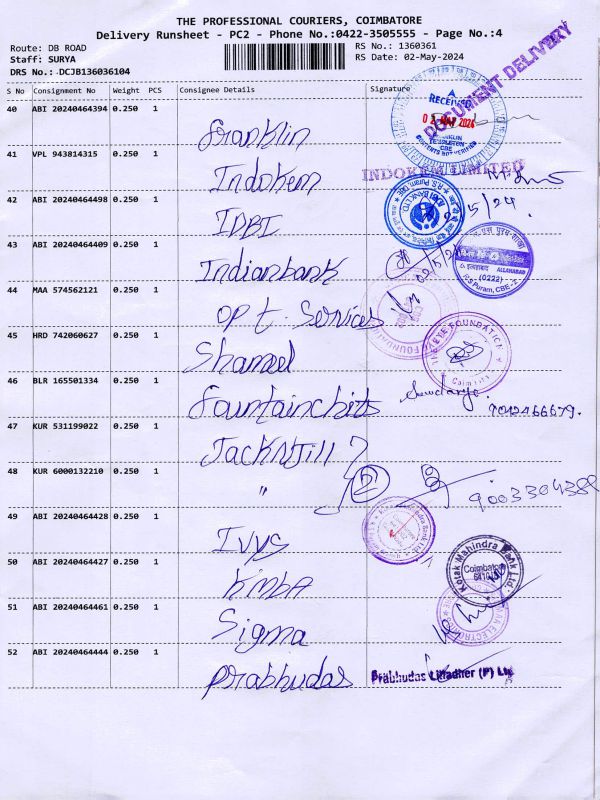 THE PROFESSIONAL COURIERS, COIMBATORE
Delivery Runsheet - PC2 - Phone No.:0422-3505555 - Page No.:4
Route: DB ROAD
RS No.: 1360361
Staff: SURYA
RS Date: 02-May-2024
DRS No.: DCJB136036104
S No Consignment No Weight PCS Consignee Details Signature
40 ABI 20240464394 0.250 1
Franklin
RECEIVED
02 MAY 2024
FRANKLIN
TEMPLETON
CBE
CONTENTS NOT VERIFIED
DOCUMENT DELIVERY
41 VPL 943814315 0.250 1
Indokem
INDOKEM LIMITED
42 ABI 20240464498 0.250 1
IDBI
2/5/24.
43 ABI 20240464409 0.250 1
Indianbank
ALLAHABAD
(0222)
R.S Puram, CBE-2
44 MAA 574562121 0.250 1
opt. Services
45 HRD 742060627 0.250 1
Shameel
EYE FOUNDATION
46 BLR 165501334 0.250 1
fountainchits
47 KUR 531199022 0.250 1
JackNJill
48 KUR 6000132210 0.250 1
" 2
9003304388
49 ABI 20240464428 0.250 1
Ivys
50 ABI 20240464427 0.250 1
KMBA
Kotak Mahindra Bank Ltd.
Coimbatore
641018
51 ABI 20240464461 0.250 1
Sigma
52 ABI 20240464444 0.250 1
Prabhudas
Prabhudas Lilladher (P) Ltd